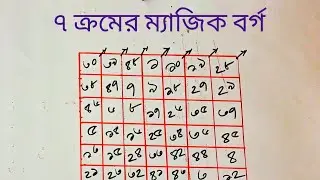 ৭ ক্রমের ম্যাজিক বর্গ
৩০ ৩৯ ৪৮ ১ ১০ ১৯ ২৮
৩৮ ৪৭ ৭ ৯ ১৮ ২৭ ২৯
৪৬ ৬ ৮ ১৭ ২৬ ৩৫ ৩৭
৫ ১৪ ১৬ ২৫ ৩৪ ৩৬ ৪৫
১৩ ১৫ ২৪ ৩৩ ৪২ ৪৪ ৪
২১ ২৩ ৩২ ৪১ ৪৩ ৩ ১২